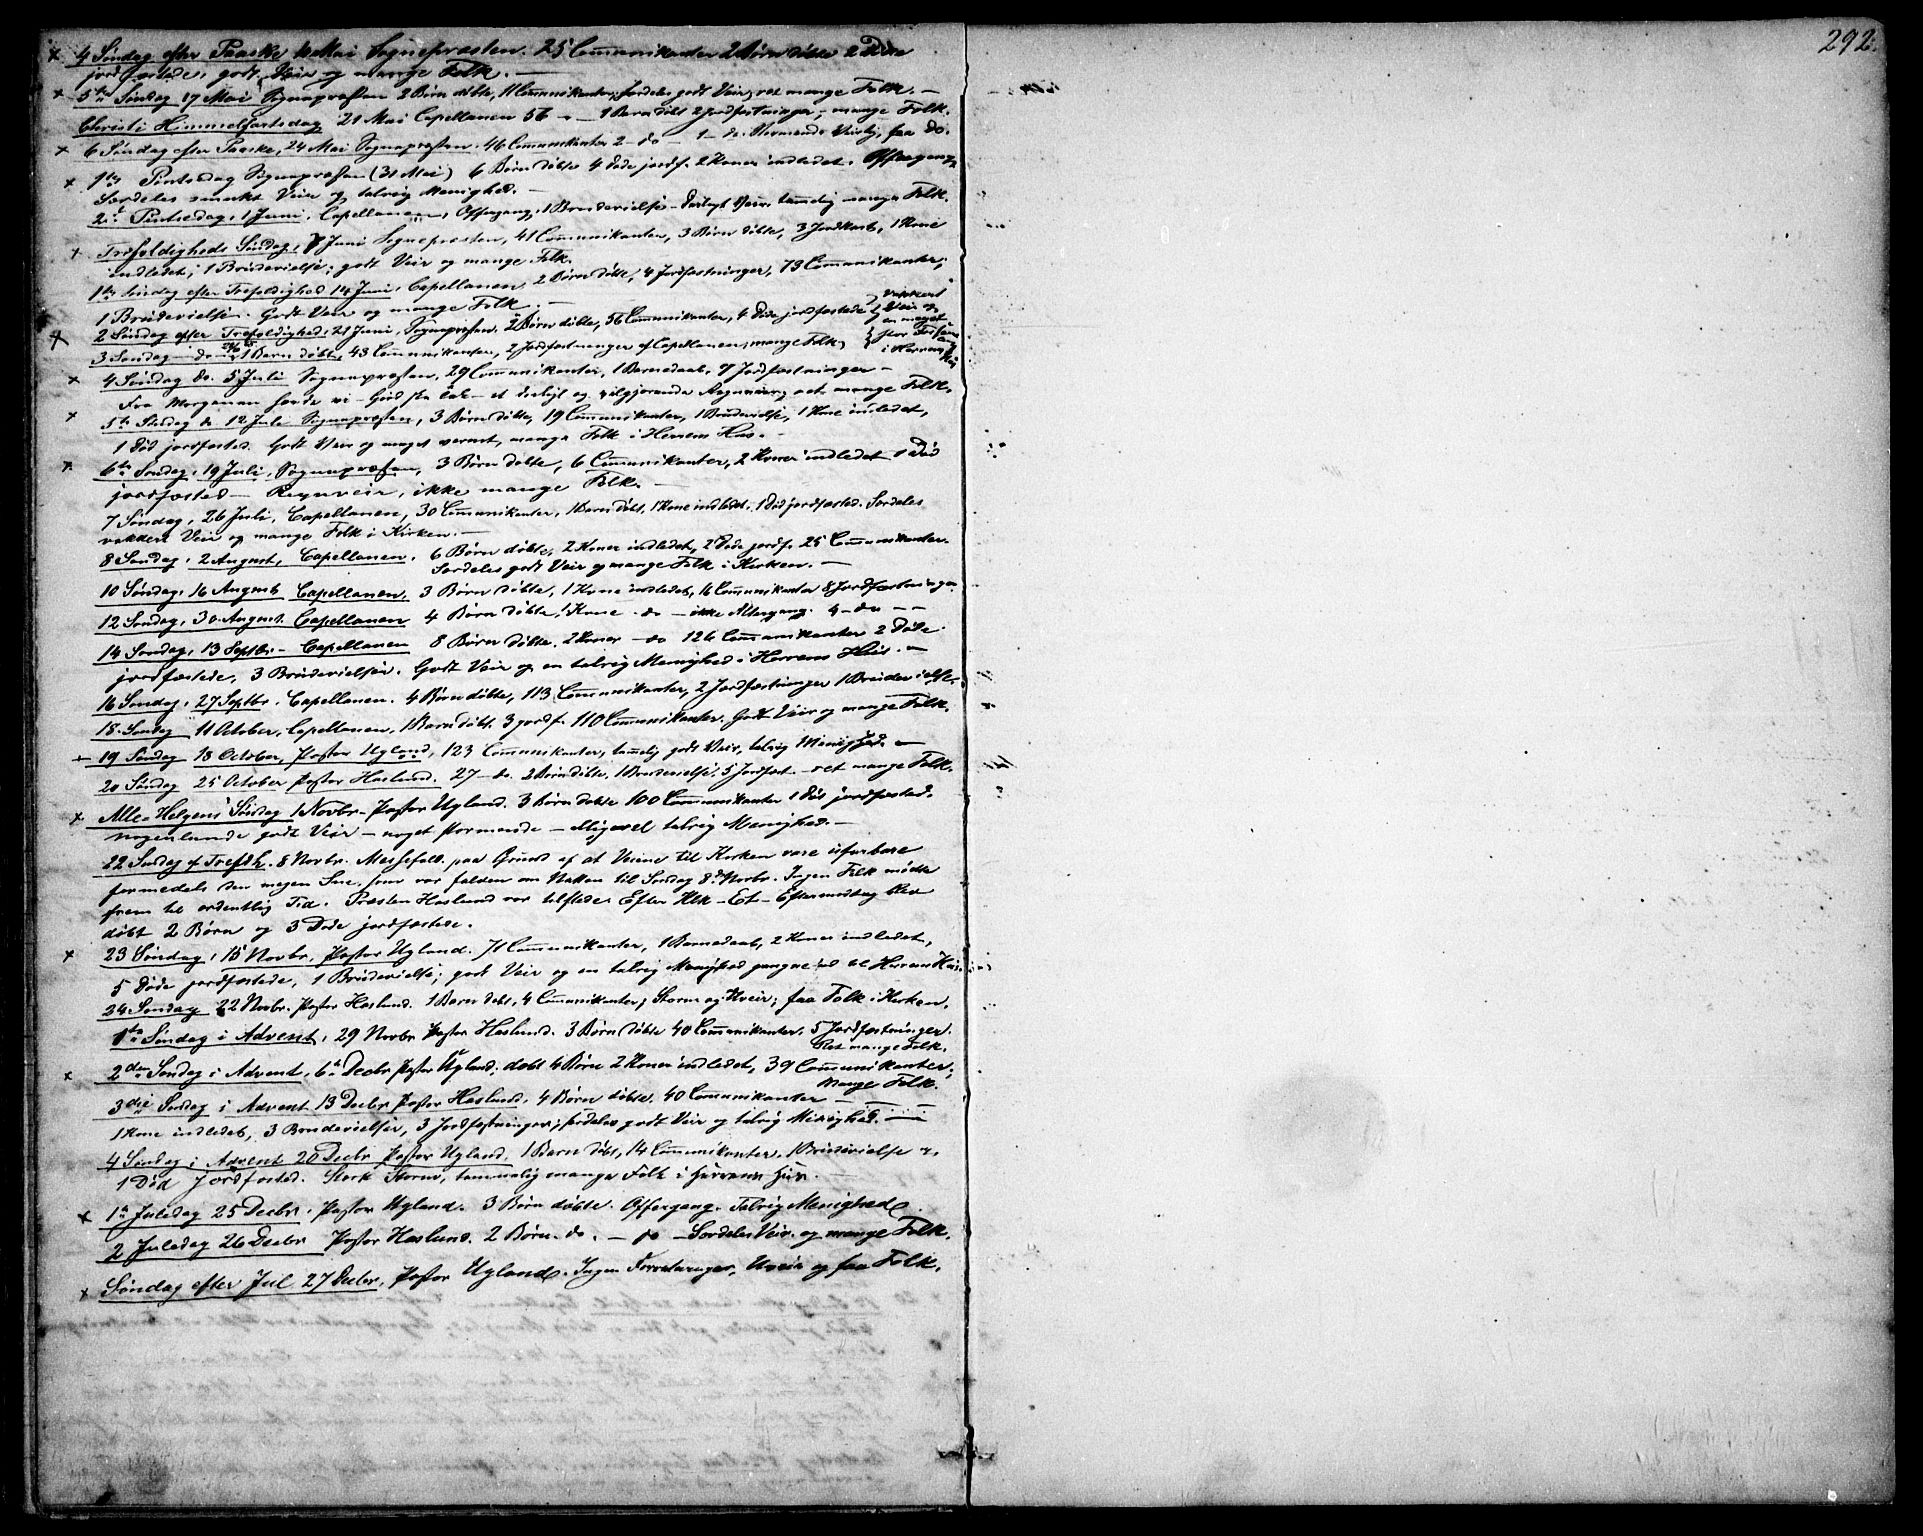 292.
x 4 Søndag efter Paaske 10 Mai Sognepræsten. 25 Communikanter 2 Børn døbte 2 Døde
jordfæstede, godt Veir og mange Folk. —
x 5te Søndag 17 Mai Sognepræsten 2 Børn døbte, 11 Communikanter, særdeles godt Veir, ret mange Folk. —
Christi Himmelfartsdag 21 Mai Capellanen 56 — 1 Barn døbt 2 Jordfæstninger, mange Folk.
x 6 Søndag efter Paaske, 24 Mai Sognepræsten. 46 Communikanter 2 do — 1 — do. Stormende Veir, faa do.
x 1ste Pintsedag Sognepræsten (31 Mai) 6 Børn døbte 4 Døde jordf. 2 Koner indledet. Offergang,
Særdeles smukt Veir og talrig Menighed. —
2. Pintsedag, 1 Juni, Capellanen, Offergang, 1 Brudevielse — deiligt Veir, temmelig mange Folk.
x Trefoldigheds Søndag, 7 Juni Sognepræsten, 41 Communikanter, 3 Børn døbte, 3 Jordkast, 1 Kone
indledet, 1 Brudevielse; godt Veir og mange Folk.
1ste Søndag efter Trefoldighed 14 Juni, Capellanen 2 Børn døbte, 4 Jordfæstninger, 73 Communikanter,
1 Brudevielse. Godt Veir og mange Folk. —
x 2 Søndag efter Trefoldighed, 21 Juni, Sognepræsten. 2 Børn døbte, 56 Communikanter, 4 Døde jordfæstede } vakkert Veir og en meget stor Forsamling i Herrens Hus
3 Søndag — do 28/6 1 Barn døbt, 43 Communikanter, 2 Jordfæstninger af Capellanen, mange Folk,
x 4 Søndag do. 5 Juli Sognepræsten, 29 Communikanter, 1 Barnedaab, 7 Jordfæstninger —
Fra Morgenen havde vi — Gud ske Lov — et deiligt og velgjørende Regnveir, ret mange Folk.
x 5te Søndag do 12 Juli Sognepræsten, 3 Børn døbte, 19 Communikanter, 1 Brudevielse, 1 Kone indledet,
1 Død jordfæstet. Godt Veir og meget varmt, mange Folk i Herrens Hus. —
x 6te Søndag, 19 Juli, Sognepræsten, 3 Børn døbte, 6 Communikanter, 2 Koner indledet 1 Død
jordfæsted — Regnveir, ikke mange Folk. —
7 Søndag, 26 Juli, Capellanen, 30 Communikanter, 1 Barn døbt, 1 Kone indledet, 1 Død jordfæsted. Særdeles
vakkert Veir og mange Folk i Kirken. —
8 Søndag, 2 August, Capellanen. 6 Børn døbte, 2 Koner indledet, 2 Døde jordf. 25 Communikanter.
Særdeles godt Veir og mange Folk i Kirken. —
10 Søndag, 16 August Capellanen, 3 Børn døbte, 1 Kone indledet, 16 Communikanter 8 Jordfæstninger
12 Søndag, 30 August. Capellanen 4 Børn døbte, 1 Kone — do — ikke Altergang. 4 — do — —
14 Søndag, 13 Septbr. — Capellanen 8 Børn døbte. 2 Koner — do 126 Communikanter 2 Døde
jordfæstede, 3 Brudevielser. Godt Veir og en talrig Menighed i Herrens Hus. —
16 Søndag, 27 Septbr. Capellanen. 4 Børn døbte, 113 Communikanter, 2 Jordfæstninger 1 Brudevielse.
18 Søndag 11 October, Capellanen, 1 Barn døbt. 3 jordf. 110 Communikanter. Godt Veir og mange Folk.
x 19 Søndag 18 October, Pastor Ugland, 123 Communikanter, temmelig godt Veir, talrig Menighed. —
20 Søndag 25 October Pastor Haslund. 27 — do. 2 Børn døbte, 1 Brudevielse, 5 Jordfæst. — ret mange Folk.
x Alle-Helgens Søndag, 1 Novbr. Pastor Ugland. 3 Børn døbte 100 Communikanter 1 Død jordfæsted.
nogenlunde godt Veir — noget stormende — alligevel talrig Menighed. —
22 Søndag e. Trefdh. 8 Novbr. Messefald paa Grund af at Veiene til Kirken vare ufarbare
formedels den megen Sne som var falden om Natten til Søndag 8de Novbr. Ingen Folk mødte
frem til ordentlig Tid. Præsten Haslund var tilstede. Efter Klk — Et — Eftermiddag blev
døbt 2 Børn og 3 Døde jordfæstede.
x 23 Søndag, 15 Novbr. Pastor Ugland. 71 Communikanter, 1 Barnedaab, 2 Koner indledet,
5 Døde jordfæstede, 1 Brudevielse; godt Veir og en talrig Menighed gangne ind til Herrens Hus
24 Søndag 22 Novbr. Pastor Haslund. 1 Barn døbt, 4 Communikanter, Storm og Uveir; faa Folk i Kirken.
1ste Søndag i Advent, 29 Novbr Pastor Haslund. 3 Børn døbte 40 Communikanter. 5 Jordfæstninger.
Ret mange Folk.
x 2den Søndag i Advent, 6te Decbr Pastor Ugland; døbt 4 Børn 2 Koner indledet, 39 Communikanter,
Mange Folk.
3die Søndag i Advent 13 Decbr Pastor Haslund. 4 Børn døbte. 40 Communikanter —
1 Kone indledet, 3 Brudevielser, 3 Jordfæstninger; særdeles godt Veir og talrig Menighed. —
4 Søndag i Advent 20 Decbr Pastor Ugland. 1 Barn døbt, 14 Communikanter, 1 Brudevielse &
1 Død jordfæsted. Stærk Storm, temmelig mange Folk i Herrens Hus.
x 1ste Juledag 25 Decbr. Pastor Ugland. 3 Børn døbte. Offergang. Talrig Menighed.
2 Juledag 26 Decbr Pastor Haslund. 2 Børn do. — do — Særdeles Veir og mange Folk.
x Søndag efter Jul 27 Decbr, Pastor Ugland. Ingen Forretninger, Uveir og faa Folk.